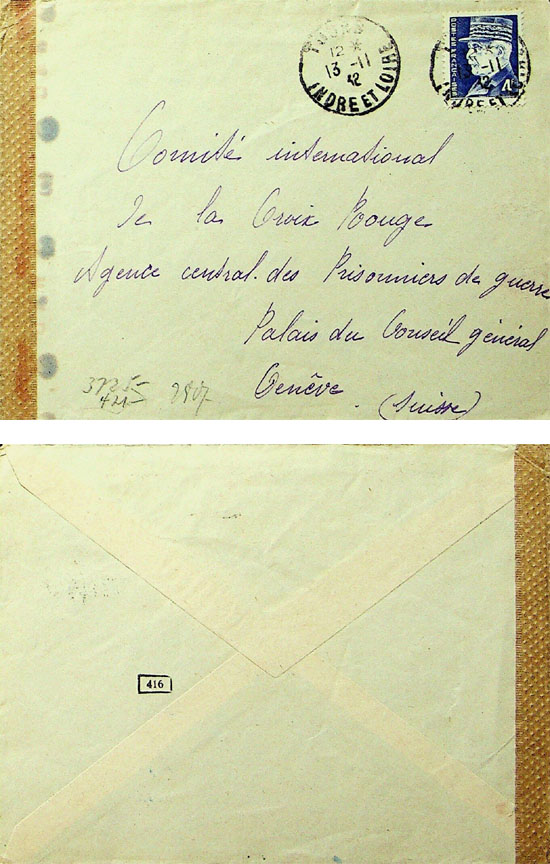 TOURS
12 *
13 -11
42
INDRE ET LOIRE
Comité international
de la Croix Rouge
Agence central. des Prisonniers de guerre
Palais du Conseil général
Genêve
(Suisse)
416